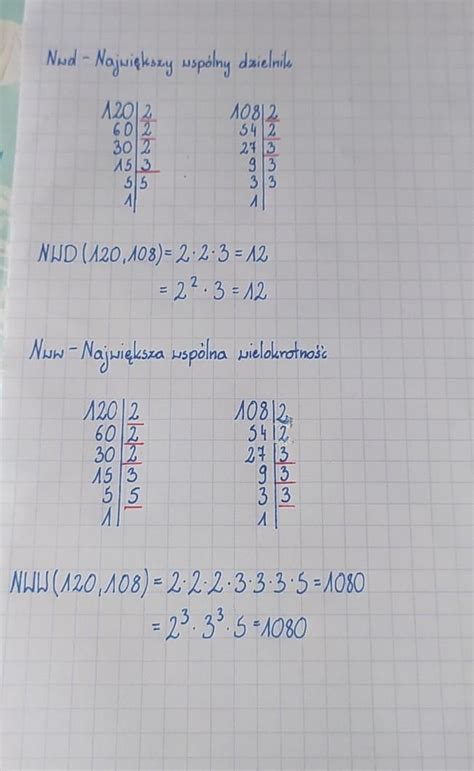 Nwd - Największy wspólny dzielnik
120|2 108|2
60|2 54|2
30|2 27|3
15|3 9|3
5|5 3|3
1| 1|
NWD (120,108) = 2·2·3 = 12
= 2² · 3 = 12
Nww - Największa wspólna wielokrotność
120|2 108|2
60|2 54|2
30|2 27|3
15|3 9|3
5|5 3|3
1| 1|
NWW (120,108) = 2·2·2·3·3·3·5 = 1080
= 2³ · 3³ · 5 = 1080